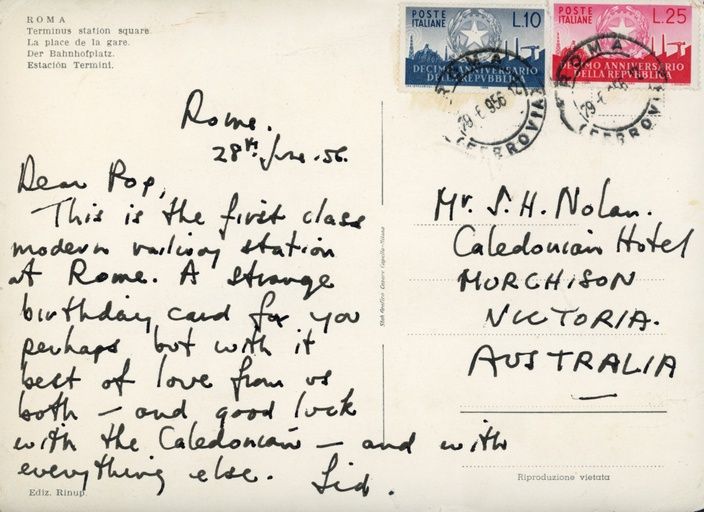 ROMA
Terminus station square.
La place de la gare.
Der Bahnhofplatz.
Estación Termini.
POSTE ITALIANE L.10
DECIMO ANNIVERSARIO
DELLA REPVBBLICA
POSTE ITALIANE L.25
DECIMO ANNIVERSARIO
DELLA REPVBBLICA
ROMA
FERROVIA
ROMA
FERROVIA
Rome.
28th June. 56.
Dear Pop,
This is the first class
modern railway station
at Rome. A strange
birthday card for you
perhaps but with it
best of love from us
both – and good luck
with the Caledonian – and with
everything else. Sid.
Mr. S. H. Nolan.
Caledonian Hotel
MURCHISON
VICTORIA.
AUSTRALIA
Ediz. Rinup.
Riproduzione vietata